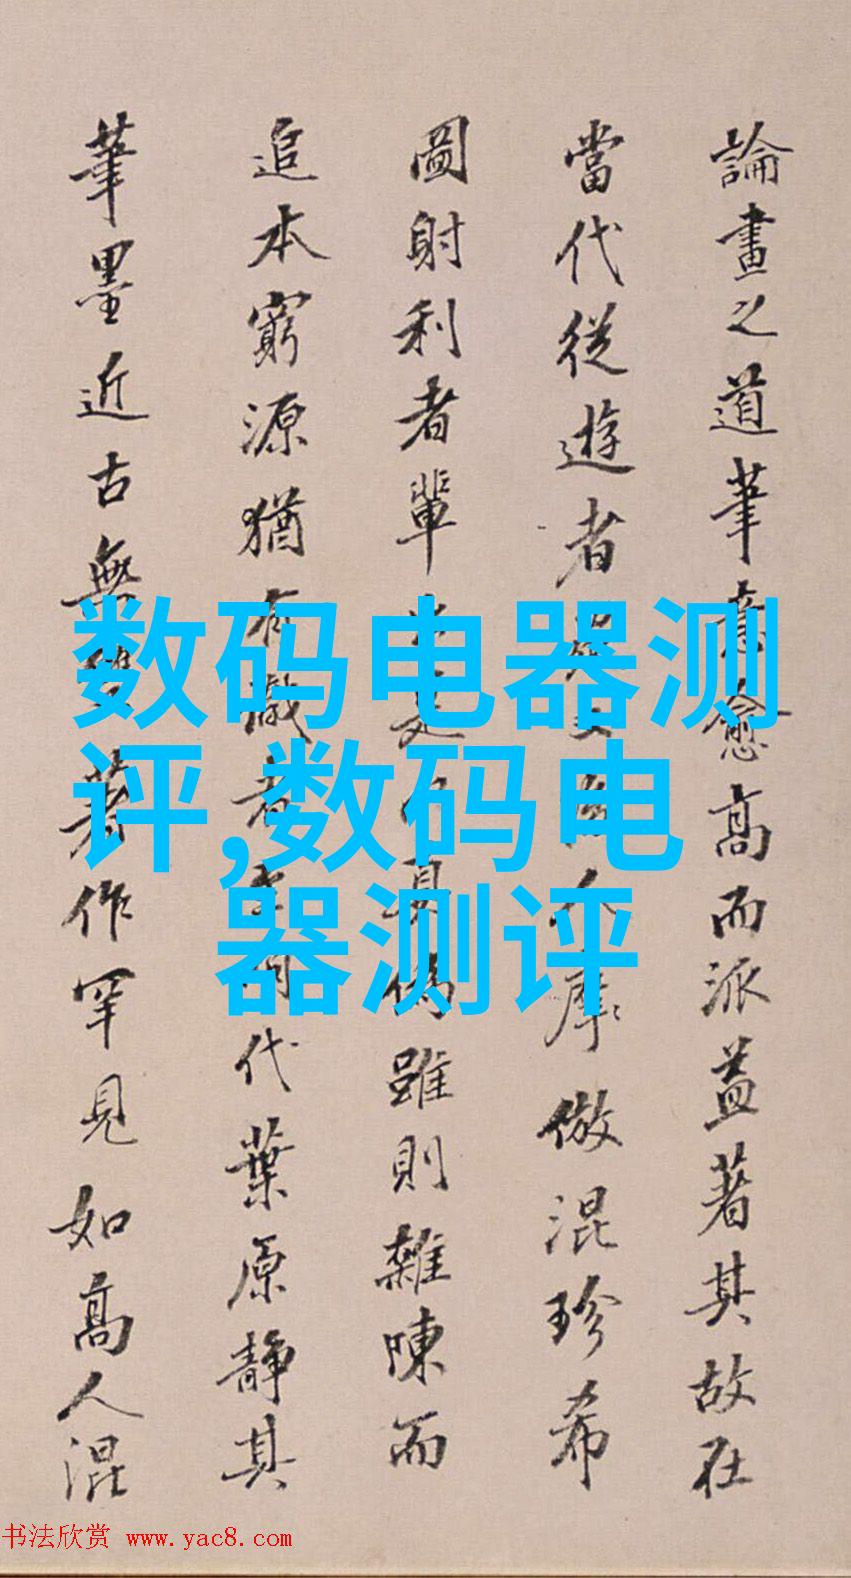 論畫之道筆意愈高而派益著其故在
當代從遊者摩倣混珍希
圖射利者輩偽雖則雜陳而
追本窮源猶有識者代葉原靜其
筆墨近古無雙著作罕見如高人混
数码电器测
评,数码电
器测评
书法欣赏 www.yac8.com